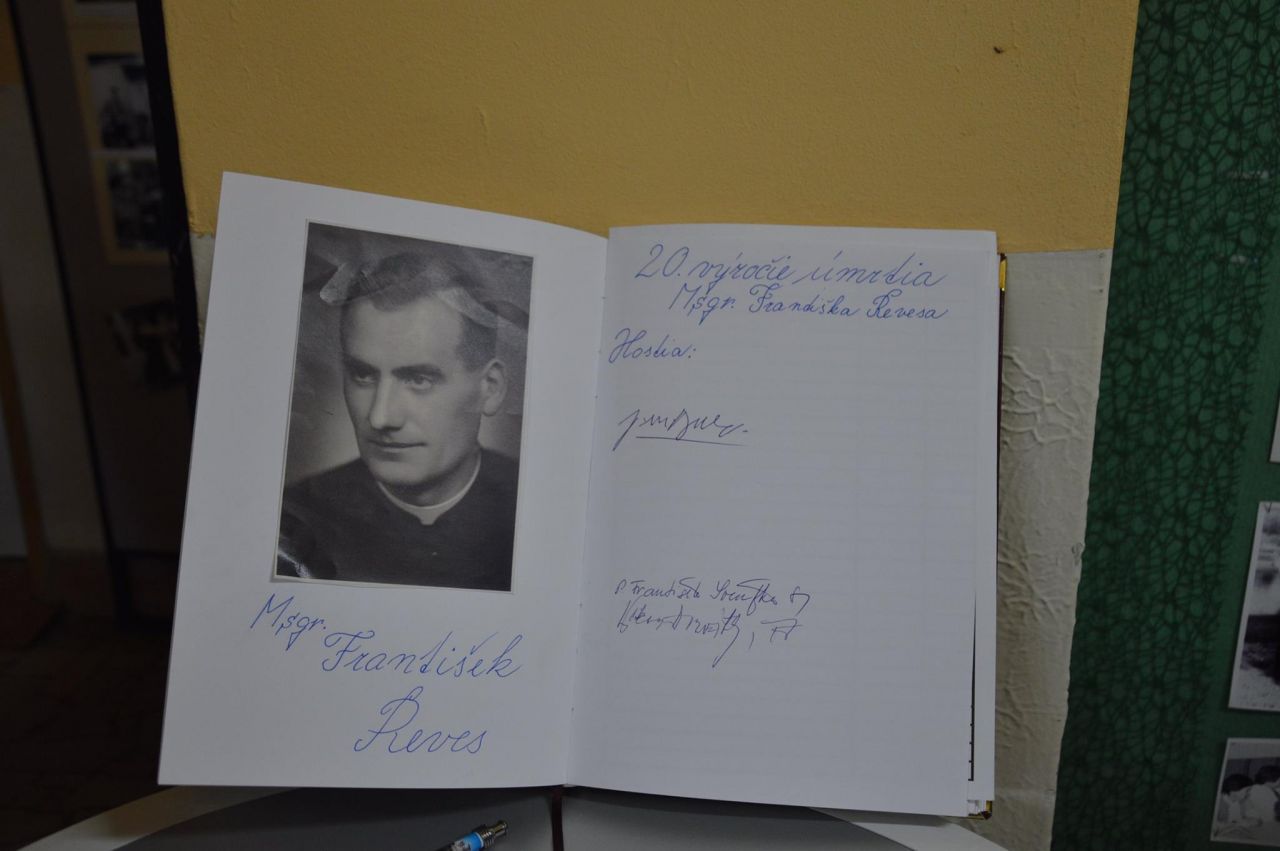 Msgr.
František
Reves
20. výročie úmrtia
Msgr. Františka Revesa
Hostia:
P. František